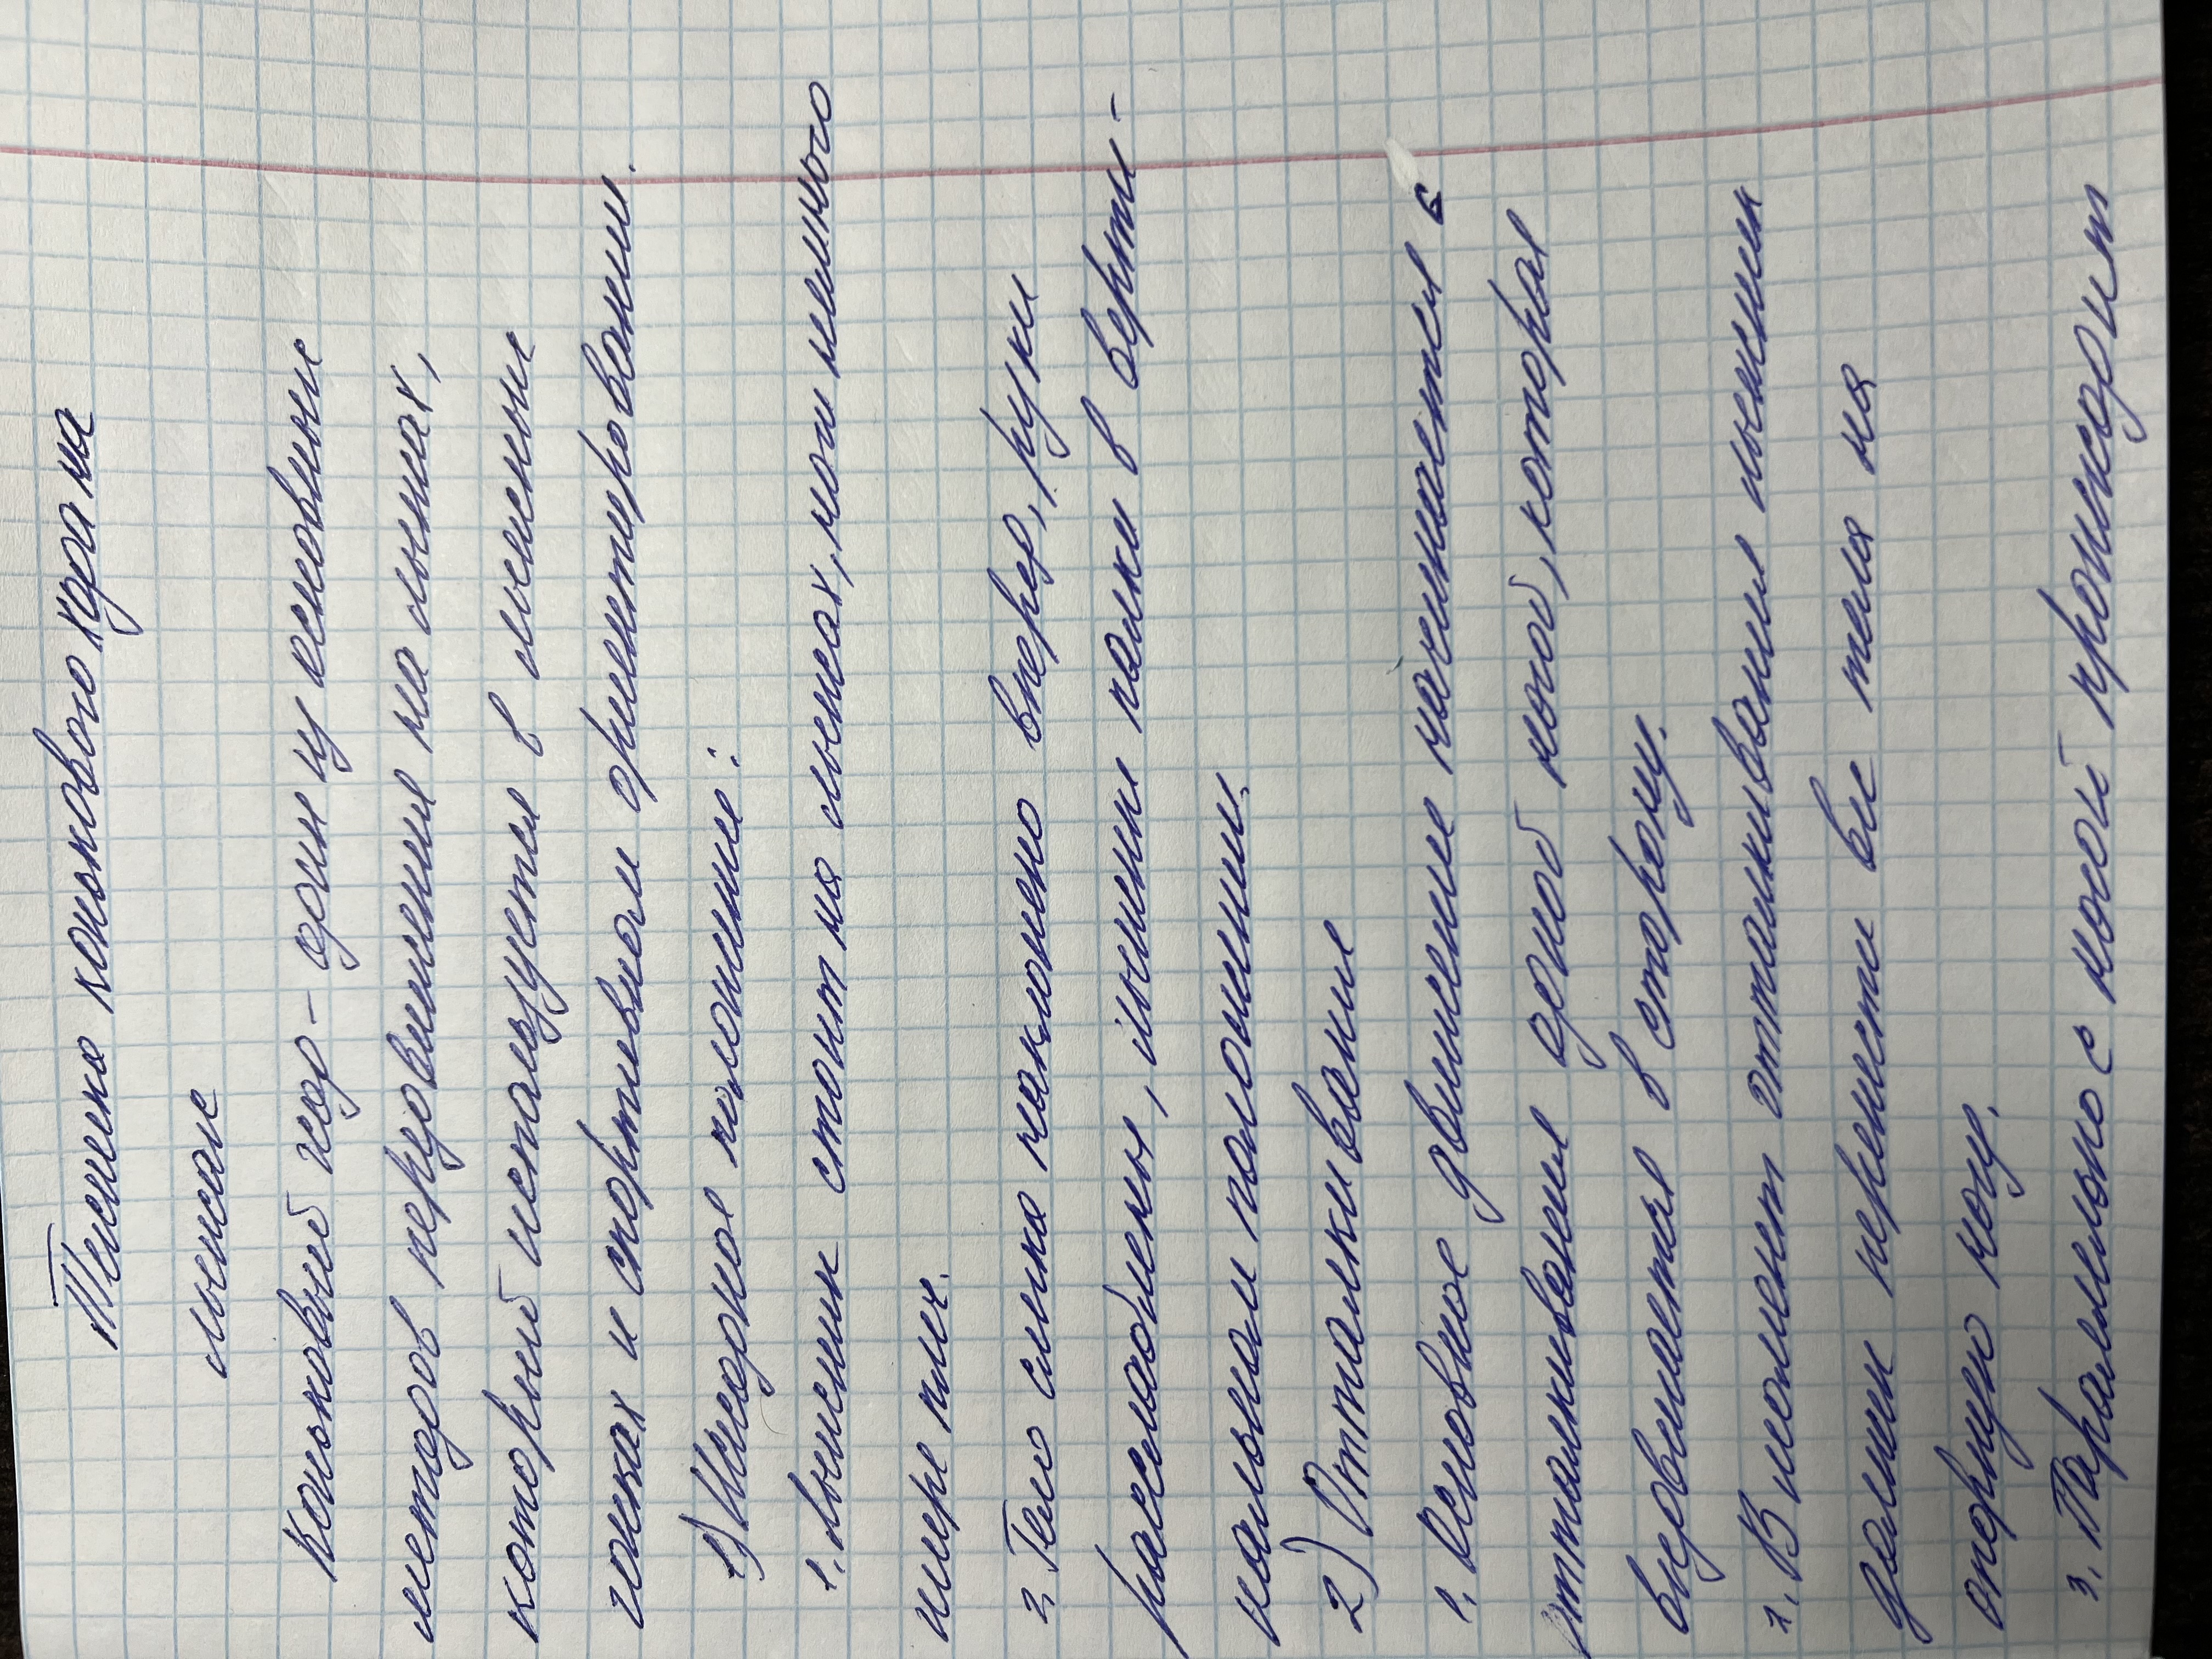 Техника конькового хода на
лыжах
Коньковый ход - один из основных
методов передвижения на лыжах,
который используется в лыжных
гонках и спортивном ориентировании.
1) Исходное положение:
1. Лыжник стоит на лыжах, ноги немного
шире плеч.
2. Тело слегка наклонено вперед, руки
расслаблены, лыжные палки в верти-
кальном положении.
2) Отталкивание
1. Основное движение начинается с
отталкивания одной ногой, которая
выдвигается в сторону.
2. В момент отталкивания лыжник
должен перенести вес тела на
опорную ногу.
3. Параллельно с ногой происходит